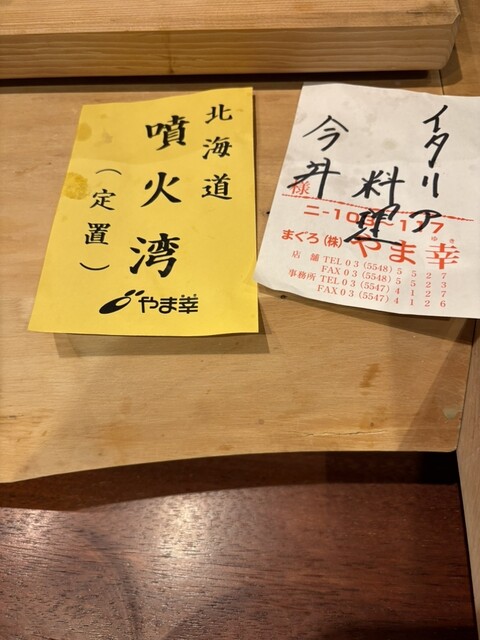 北海道
噴火湾
(定置)
やま幸
イタリア
料理
今井
様
ニ-103~117
まぐろ(株)やま幸
ゆき
店舗 TEL 03 (5548) 5527
FAX 03 (5548) 5523
事務所 TEL 03 (5547) 4127
FAX 03 (5547) 4126